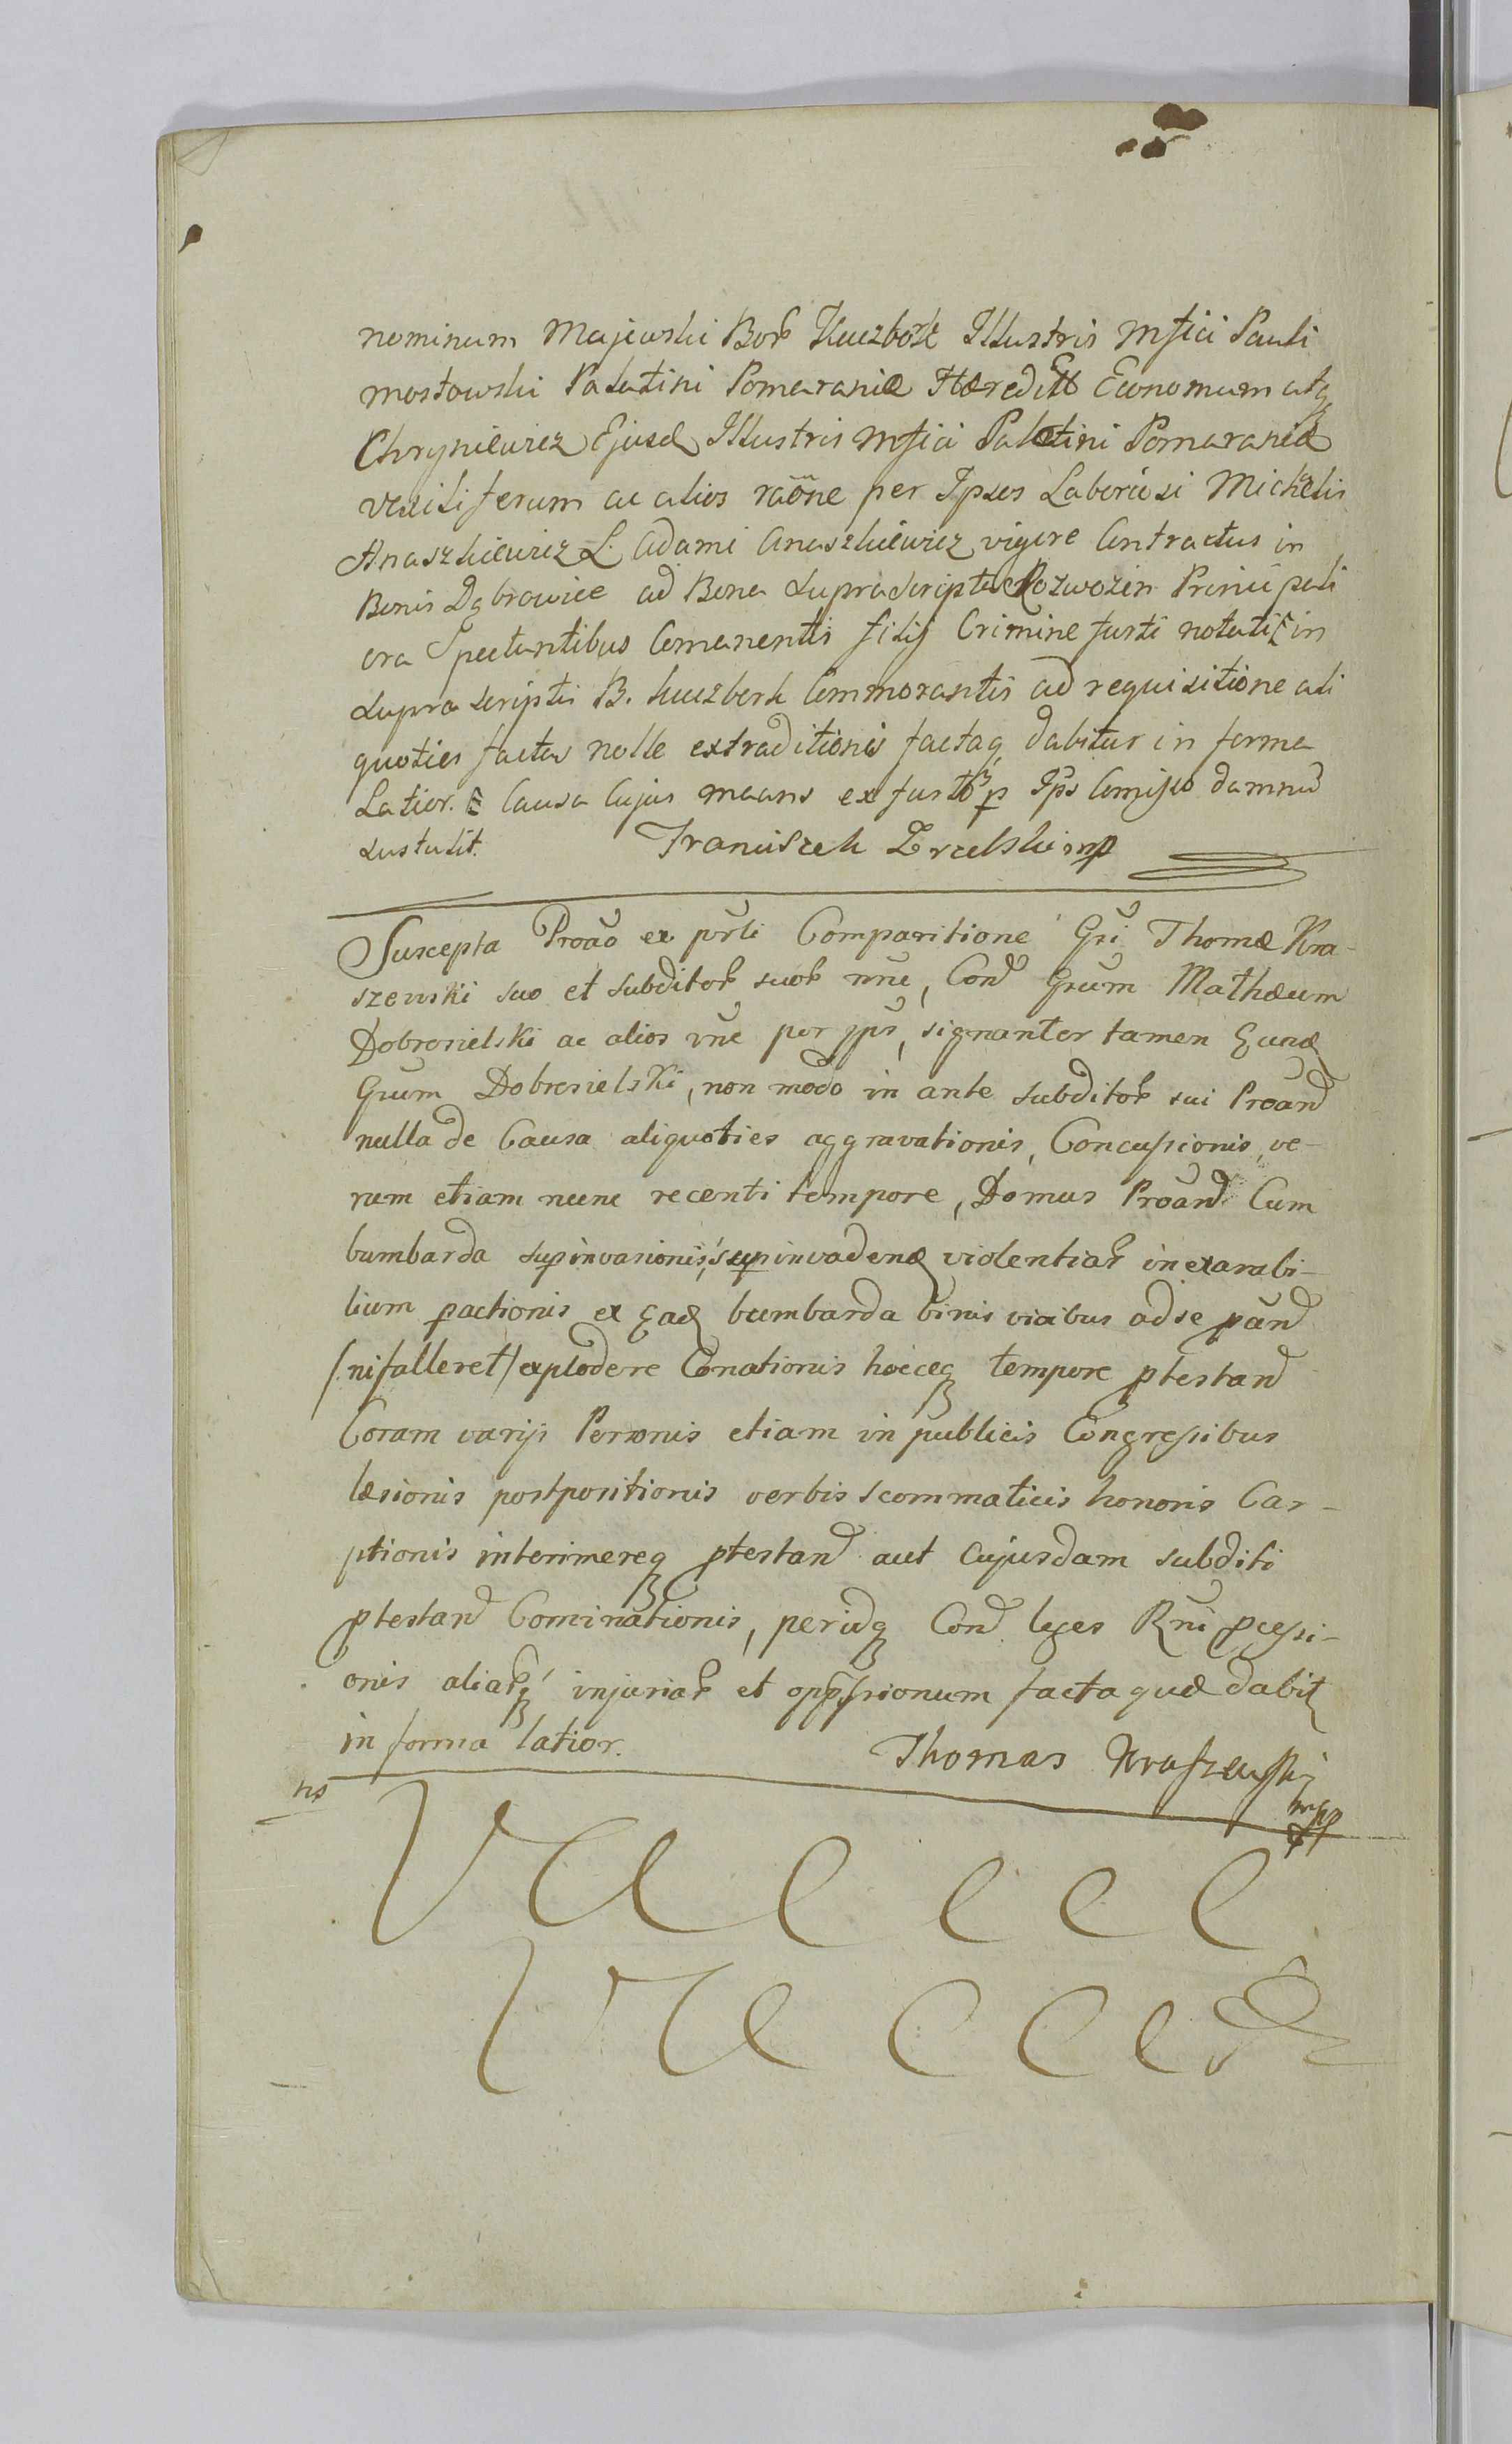 nominum Majewski Bor Kuczbork Illustris Mfici Pauli
Mostowski Palatini Pomeraniæ Hæredit Economum atq
Chryniewicz Ejusd Illustris Mfici Palatini Pomeraniæ
vexiliferum ac alios raõne per Ipsos Laboriosi Michælis
Anaszkiewicz L. Adami Anaszkiewicz vigore Contractus in
Bonis Dąbrowice ad Bona Supra Scripta Rozwozin Principali
ora Spectantibus Comanentis filij Crimine furti notati in
supra scriptis B. Kuczbork Commorantis ad requisitione ali
quoties factas nolle extraditionis factaq dabitur in forma
Latior. E Causa Cujus means ex furto p Ips Comisso damnũ
sustulit. Franciszek Zrzelski mp
Suscepta Proãõ ex pñti Comparitione Gñi Thomæ Kra-
szewski suo et subditor suor nñe, Cond Gñum Mathæum
Dobrosielski ac alios vñe per jps, signanter tamen Eund
Gñum Dobrosielski, non modo in ante subditor sui Proãnd
nulla de Causa aliquoties aggravationis, Concussionis, ve-
rum etiam nunc recenti tempore, Domus Proãnd. Cum
bumbarda sup invasionis, sup invadend violentiar inexarabi-
lium pactionis ex Ead bumbarda binis vicibus ad se pãnd
/:ni falleret/ explodere Conationis hocceq tempore ptestand
Coram varijs Personis etiam in publicis Congressibus
læsionis postpositionis verbis scommaticis honoris Car-
ptionis interimereq ptestand aut Cujusdam subditi
ptestand Cominationis, peridq Cond leges Rñi pcessi-
onis aliarq injuriar et oppssionum facta quæ dabit
in forma latior. Thomas Kraszewski
mpp
ns